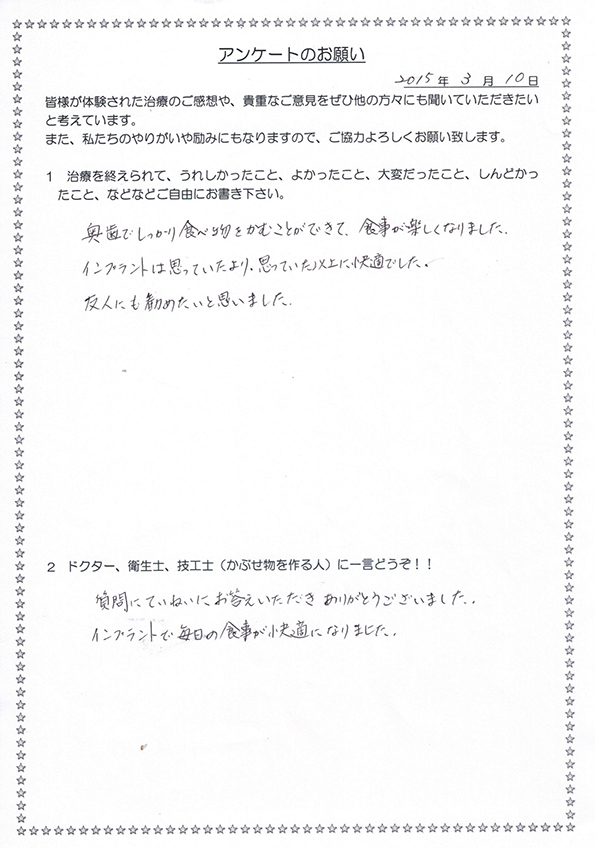 アンケートのお願い
2015年 3月 10日
皆様が体験された治療のご感想や、貴重なご意見をぜひ他の方々にも聞いていただきたい
と考えています。
また、私たちのやりがいや励みにもなりますので、ご協力よろしくお願い致します。
1 治療を終えられて、うれしかったこと、よかったこと、大変だったこと、しんどかっ
たこと、などなどご自由にお書き下さい。
奥歯でしっかり食べ物をかむことができて、食事が楽しくなりました.
インプラントは思っていたより.思っていた以上に快適でした。
友人にも勧めたいと思いました.
2 ドクター、衛生士、技工士(かぶせ物を作る人)に一言どうぞ!!
質問にていねいにお答えいただき ありがとうございました.
インプラントで毎日の食事が快適になりました.